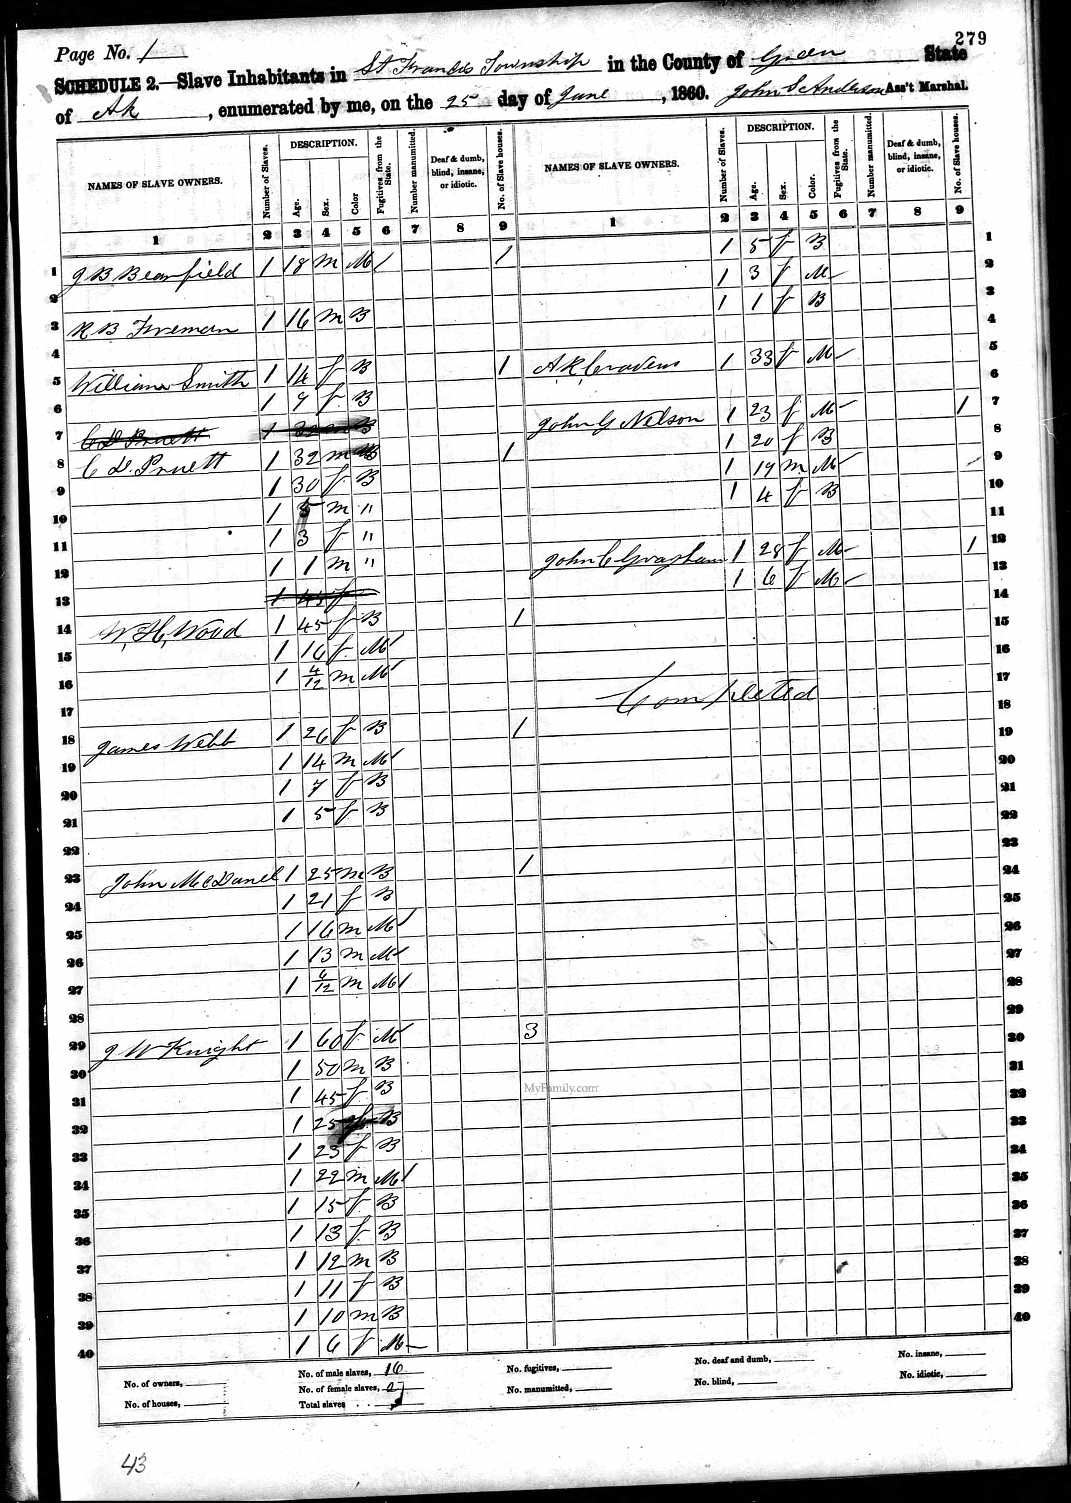 279
Page No. 1
SCHEDULE 2.—Slave Inhabitants in St Francis Township in the County of Green State
of Ak, enumerated by me, on the 25 day of June, 1860. John S Anderson Ass't Marshal.
NAMES OF SLAVE OWNERS. Number of Slaves. DESCRIPTION. Age. Sex. Color Fugitives from the State. Number manumitted. Deaf & dumb, blind, insane, or idiotic. No. of Slave houses.
1 2 3 4 5 6 7 8 9
1 J B Beanfield 1 18 m M / 1
2
3 R B Freeman 1 16 m B
4
5 William Smith 1 14 f B 1
6 1 7 f B
7 C D Pruett 1 32 m B
8 C D. Pruett 1 32 m B 1
9 1 30 f B
10 1 5 m "
11 1 3 f "
12 1 1 m "
13 1 45 f
14 W, H, Wood 1 45 f B 1
15 1 16 f M
16 1 4/12 m M
17
18 James Webb 1 26 f B 1
19 1 14 m M
20 1 7 f B
21 1 5 f B
22
23 John McDanel 1 25 m B 1
24 1 21 f B
25 1 16 m M
26 1 13 m M
27 1 6/12 m M
28
29 J W Knight 1 60 f M 3
30 1 50 m B
31 1 45 f B
32 1 25 B
33 1 23 f B
34 1 22 m M
35 1 15 f B
36 1 13 f B
37 1 12 m B
38 1 11 f B
39 1 10 m B
40 1 6 f M
NAMES OF SLAVE OWNERS. Number of Slaves. DESCRIPTION. Age. Sex. Color. Fugitives from the State. Number manumitted. Deaf & dumb, blind, insane, or idiotic. No. of Slave houses.
1 2 3 4 5 6 7 8 9
1 5 f B 1
1 3 f M 2
1 1 f B 3
4
A R, Cravens 1 33 f M 5
6
John G Nelson 1 23 f M 1 7
1 20 f B 8
1 19 m M 9
1 4 f B 10
11
John C Graham 1 28 f M 1 12
1 6 f M 13
14
15
16
17
Completed
18
19
20
21
22
23
24
25
26
27
28
29
30
31
32
33
34
35
36
37
38
39
40
MyFamily.com
No. of owners, No. of male slaves, 16 No. fugitives, No. deaf and dumb, No. insane,
No. of houses, No. of female slaves, No. manumitted, No. blind, No. idiotic,
Total slaves
43